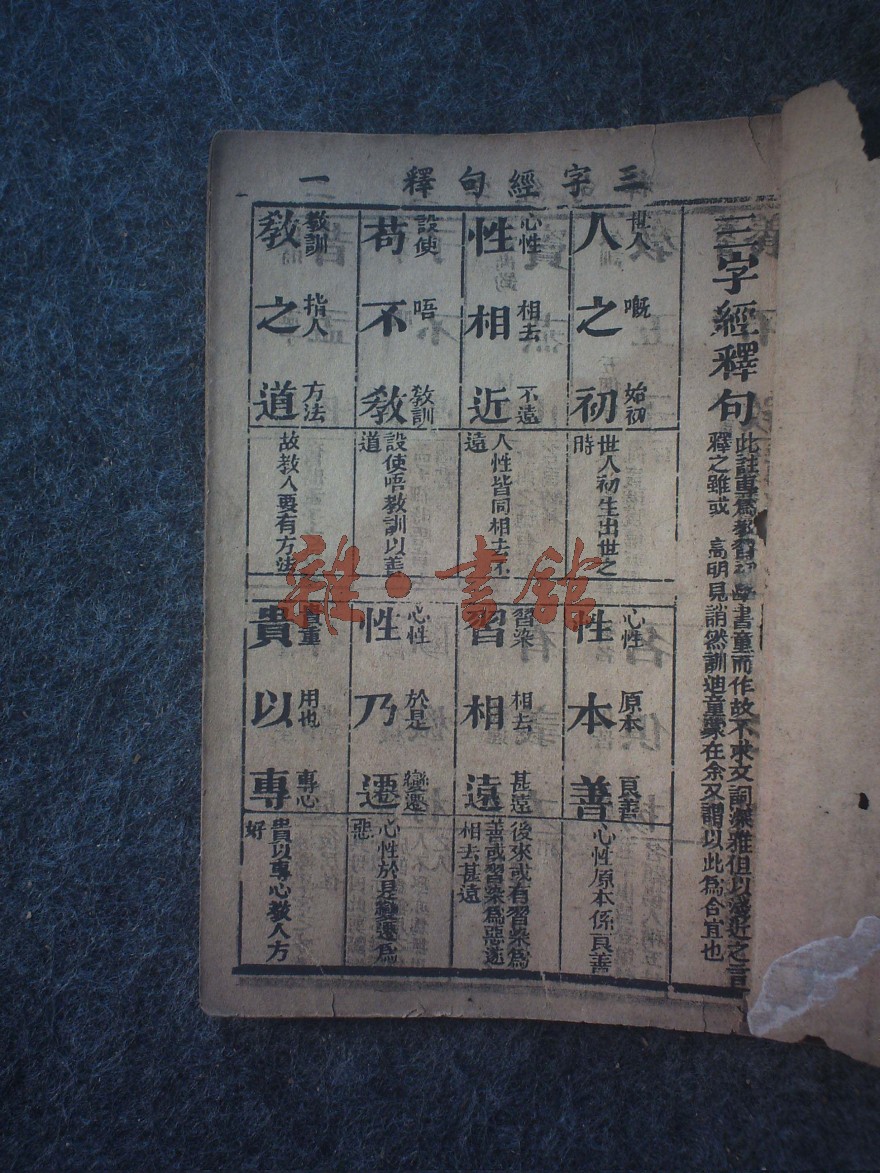 三字經句釋 一
三字經釋句
此註專為教習初學書童而作故不求文詞深雅但以淺近之言
釋之雖或 高明見誚然訓迪童蒙在余又謂以此為合宜也
人之初
世人 嘅 始初
世人初生出世之時
性本善
心性 原本 良善
心性原本係良善
性相近
心性 相去 不遠
人性皆同相去不遠
習相遠
習染 相去 甚遠
後來或有習染為善或習染為惡遂相去甚遠
苟不教
設使 唔 教訓
設使唔教訓以善道
性乃遷
心性 於是 變遷
心性於是變遷為惡
教之道
教訓 指人 方法
故教人要有方法
貴以專
貴重 用也 專心
貴以專心教人方好
雜·書館